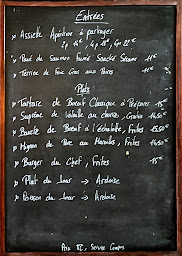 Entrées
Assiette Apéritive à partager
2p 14€, 4p 18€, 6p 22€
Pavé de Saumon fumé Sauce Sésame 11€
Terrine de Foie Gras aux Poires 11€
Plats
Tartare de Boeuf Classique à Préparer 15€
Suprême de Volaille au chorizo, Gratin 14.50€
Bavette de Boeuf à l'échalotte, Frites 15.50€
Mignon de Porc au Maroilles, Frites 14.50€
Burger du Chef, Frites 15€
Plat du Jour → Ardoise
Poisson du Jour → Ardoise
Prix TTC, Service Compris